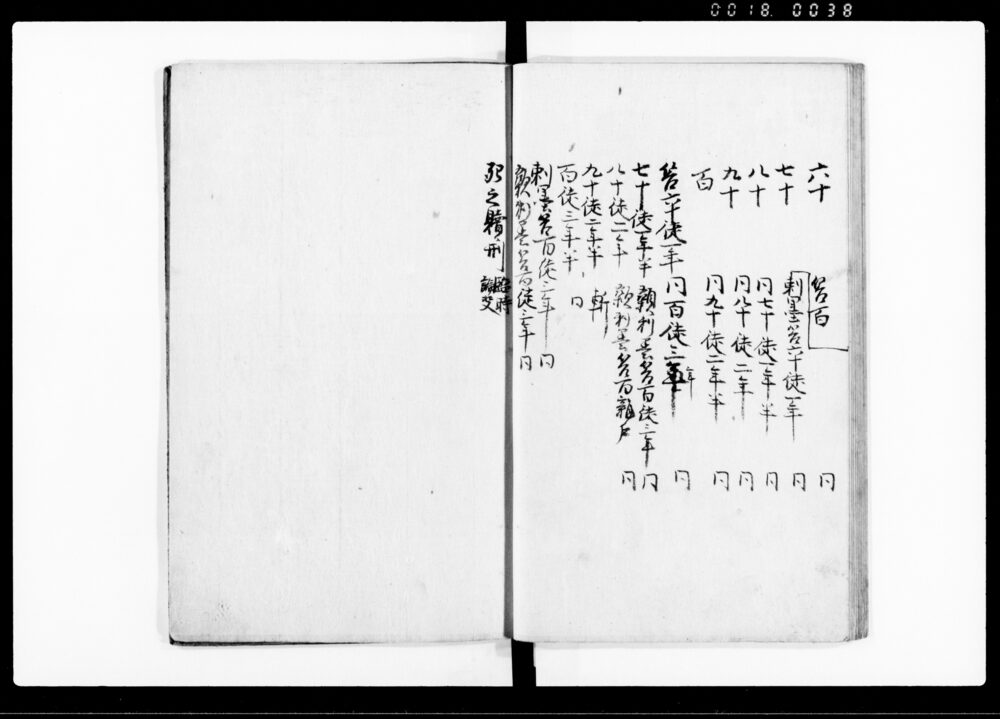 0018 0038
六十 笞百 冂
七十 刺墨笞六十徒一年 冂
八十 冂七十徒一年半 冂
九十 冂八十徒二年 冂
百 冂九十徒二年半 冂
笞六十徒一年 冂百徒三年 冂
七十徒一年半 額刺墨笞百徒三年 冂
八十徒二年 額刺墨笞百雜戸 冂
九十徒二年半 斬
百徒三年半 冂
刺墨笞百徒三年 冂
額刺墨笞百徒三年 冂
之贖刑 臨時